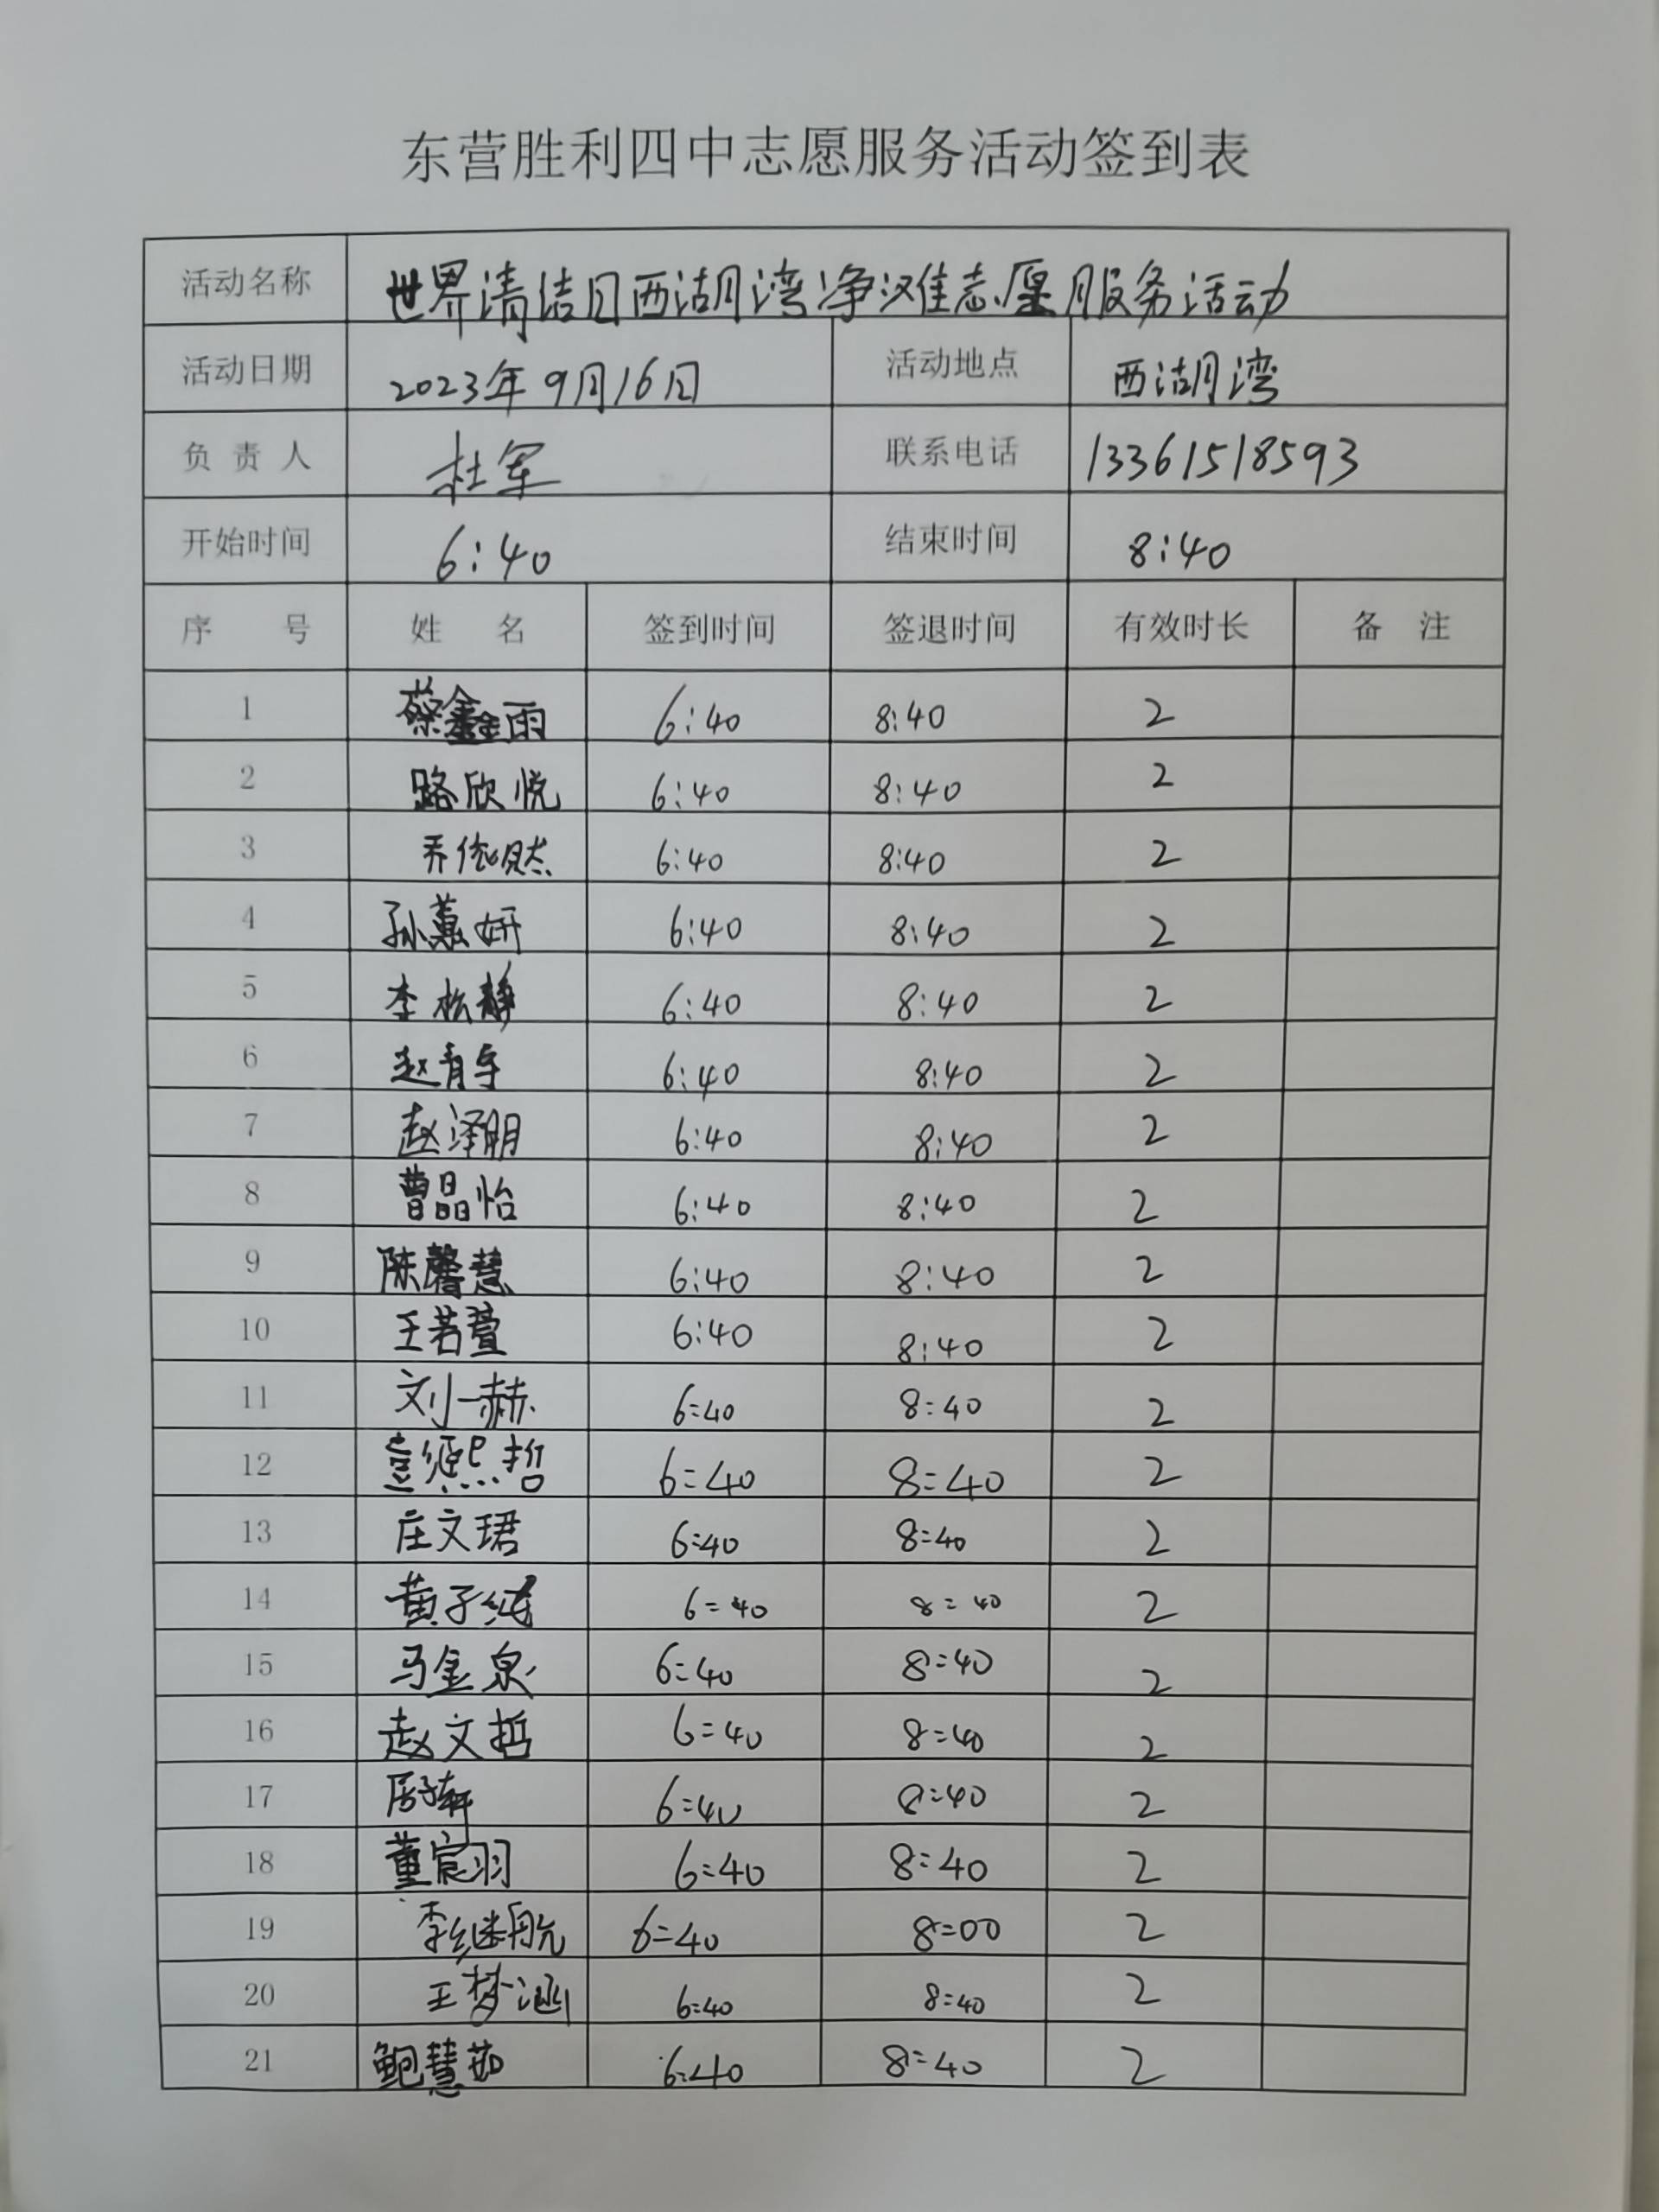 东营胜利四中志愿服务活动签到表
活动名称 世界清洁日西湖湾净滩志愿服务活动
活动日期 2023年9月16日 活动地点 西湖湾
负责人 杜军 联系电话 13361518593
开始时间 6:40 结束时间 8:40
序号 姓名 签到时间 签退时间 有效时长 备注
1 蔡鑫雨 6:40 8:40 2
2 路欣悦 6:40 8:40 2
3 乔依然 6:40 8:40 2
4 孙蕙妍 6:40 8:40 2
5 李松静 6:40 8:40 2
6 赵青宇 6:40 8:40 2
7 赵泽明 6:40 8:40 2
8 曹晶怡 6:40 8:40 2
9 陈馨慧 6:40 8:40 2
10 王若萱 6:40 8:40 2
11 刘一赫 6:40 8:40 2
12 6:40 8:40 2
13 庄文珺 6:40 8:40 2
14 黄子纯 6:40 8:40 2
15 马金泉 6:40 8:40 2
16 赵文哲 6:40 8:40 2
17 6:40 8:40 2
18 董宸羽 6:40 8:40 2
19 李继航 6:40 8:00 2
20 王梦涵 6:40 8:40 2
21 鲍慧茹 6:40 8:40 2